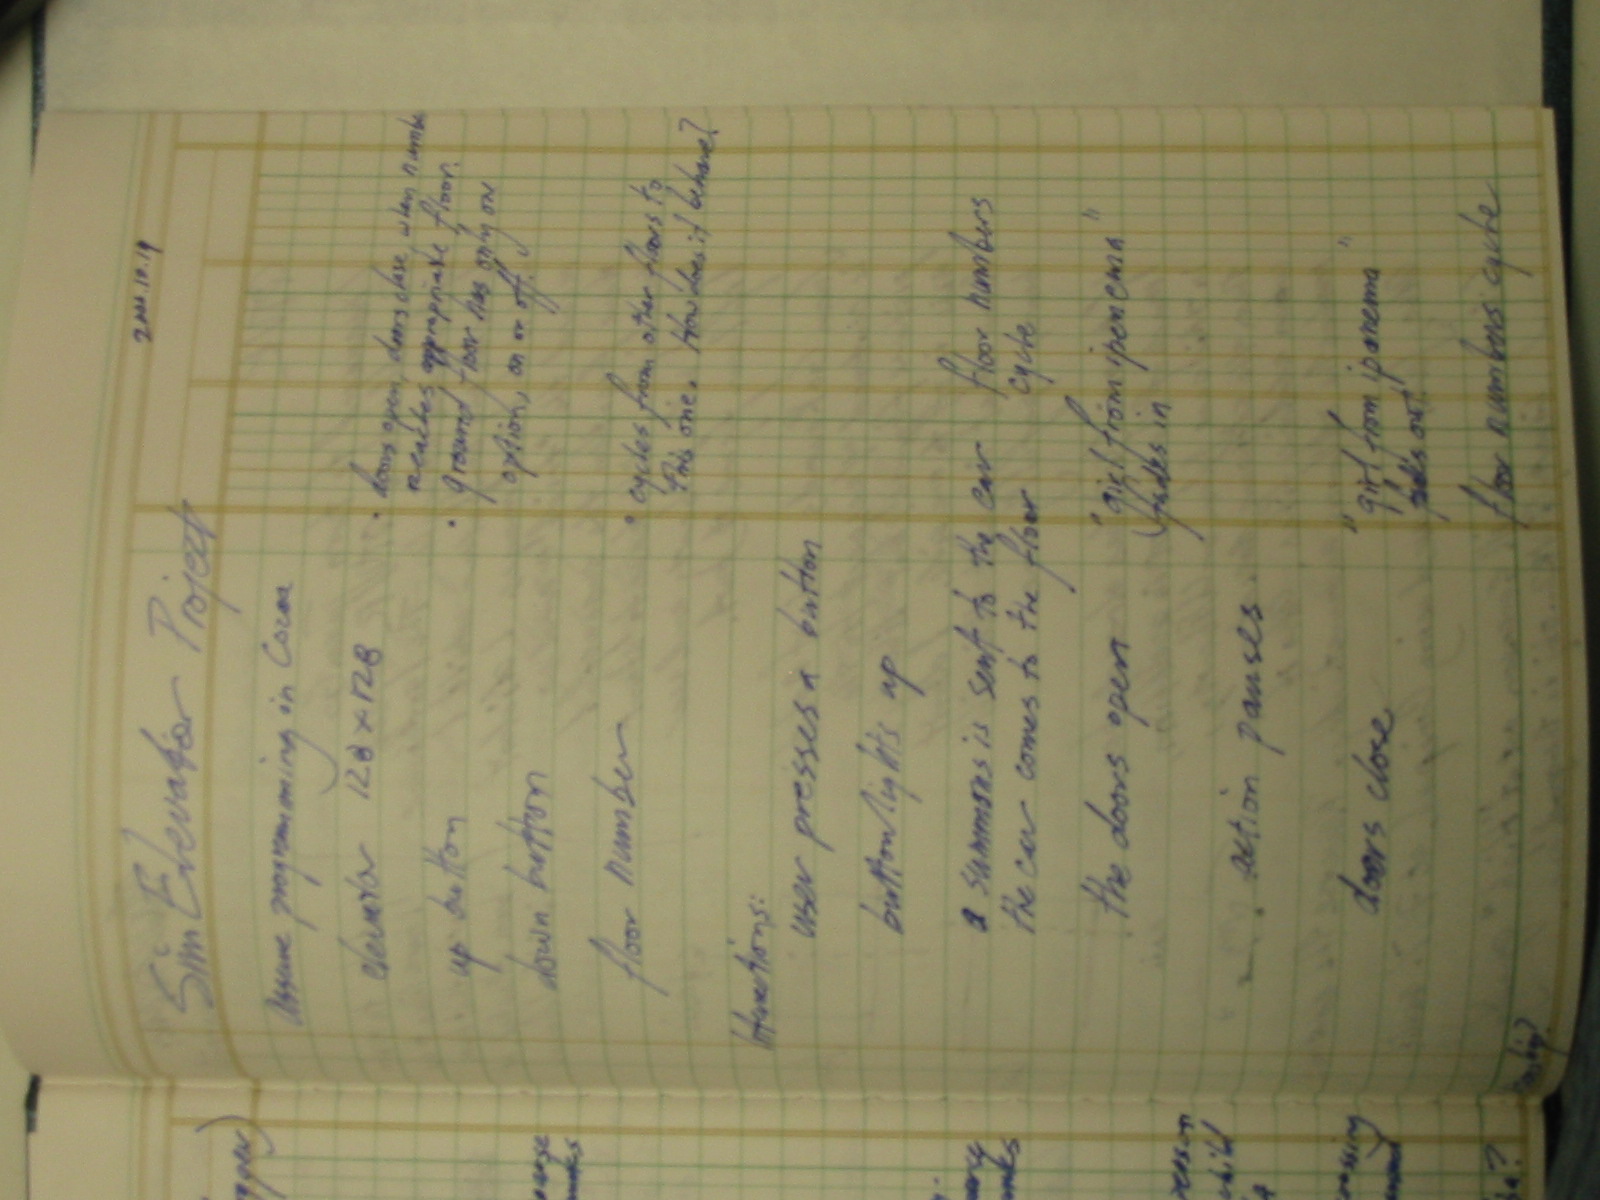 Sim Elevator Project
2001.10.19
Assume programming in Cocoa
elevator 128 x 128
up button
down button
floor number
• doors open, doors close when numbe
reaches appropriate floor.
• ground floor has only one
option, on or off.
• cycles from other floors to
this one. How does it behave?
Interactions:
user presses a button
button lights up
a summons is sent to the car
the car comes to the floor
floor numbers
cycle
the doors open
"girl from ipanema"
fades in
action pauses.
doors close
"girl from ipanema"
fades out
floor numbers cycle